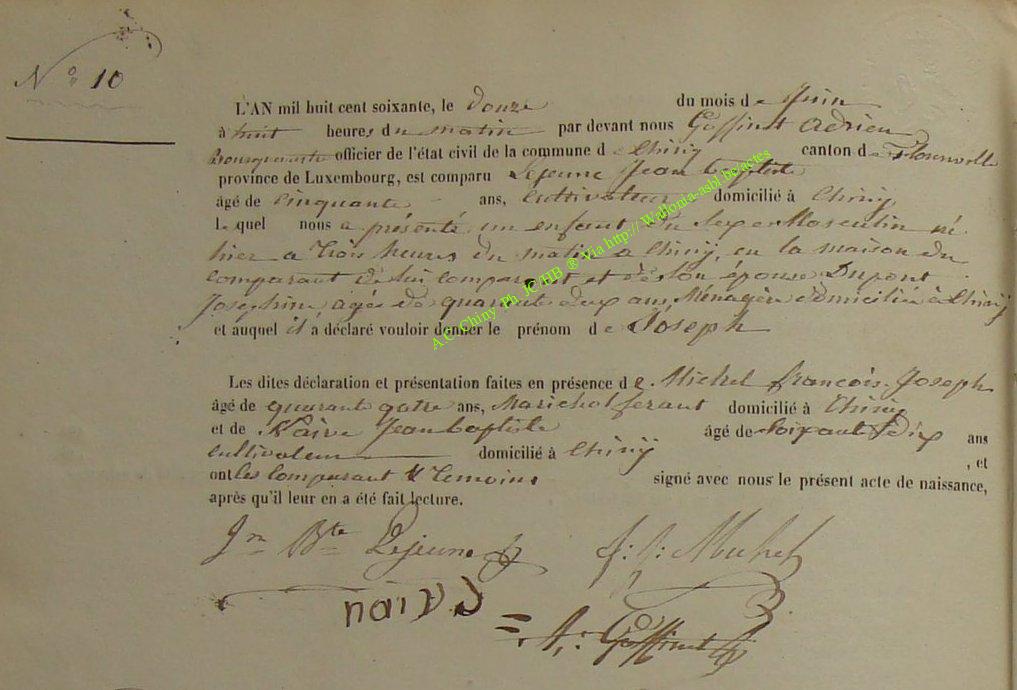 N° 10
L'AN mil huit cent soixante, le douze du mois de Juin
à huit heures du matin par devant nous Goffinet Adrien
Bourguemestre officier de l'état civil de la commune de Chiny canton de Florenville
province de Luxembourg, est comparu Lejeune Jean baptiste
âgé de cinquante ans, cultivateur domicilié à Chiny,
Le quel nous a présenté un enfant du sexe Masculin né
hier a trois heures du matin a Chiny, en la maison du
comparant de lui comparant et de son épouse Dupont
Josephine, agée de quarante deux ans, Ménagère domiciliée à Chiny
et auquel il a déclaré vouloir donner le prénom de Joseph
Les dites déclaration et présentation faites en présence de Michel francois Joseph
âgé de quarant qatre ans, Marichal ferant domicilié à Chiny
et de Naive Jean baptiste âgé de Soixant dix ans
cultivateur domicilié à Chiny , et
ont les comparant & temoins signé avec nous le présent acte de naissance,
après qu'il leur en a été fait lecture.
Jn Bte Lejeune f: j: Michel
naive
A: Goffinet
A.C. Chiny Ph. JC HB ® Via http:// Wallonia-asbl.be/actes